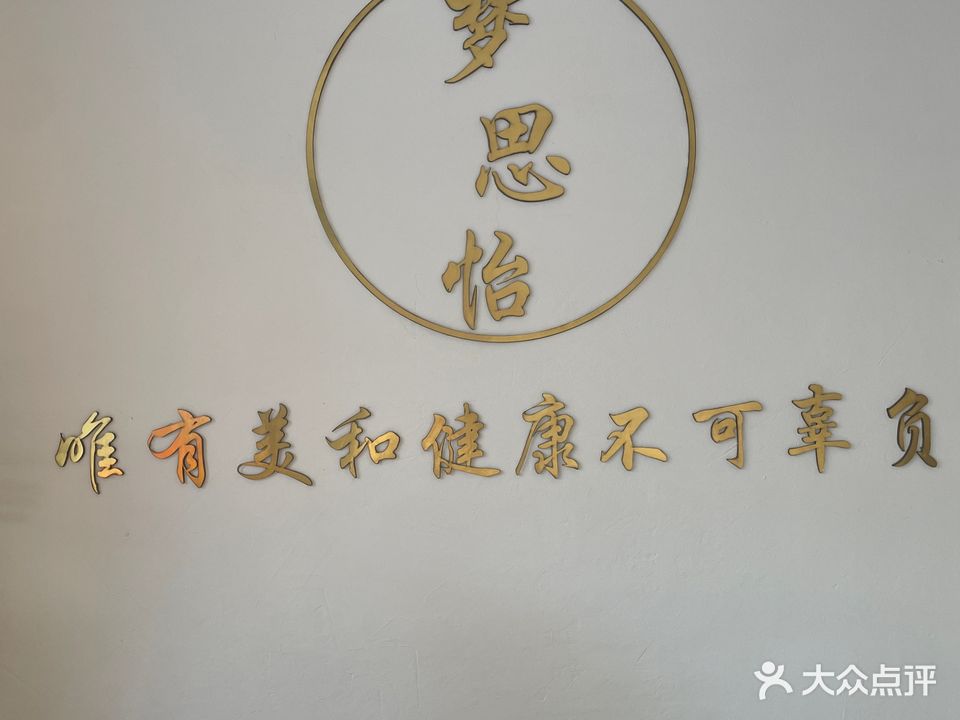 梦
思
怡
唯有美和健康不可辜负
大众点评